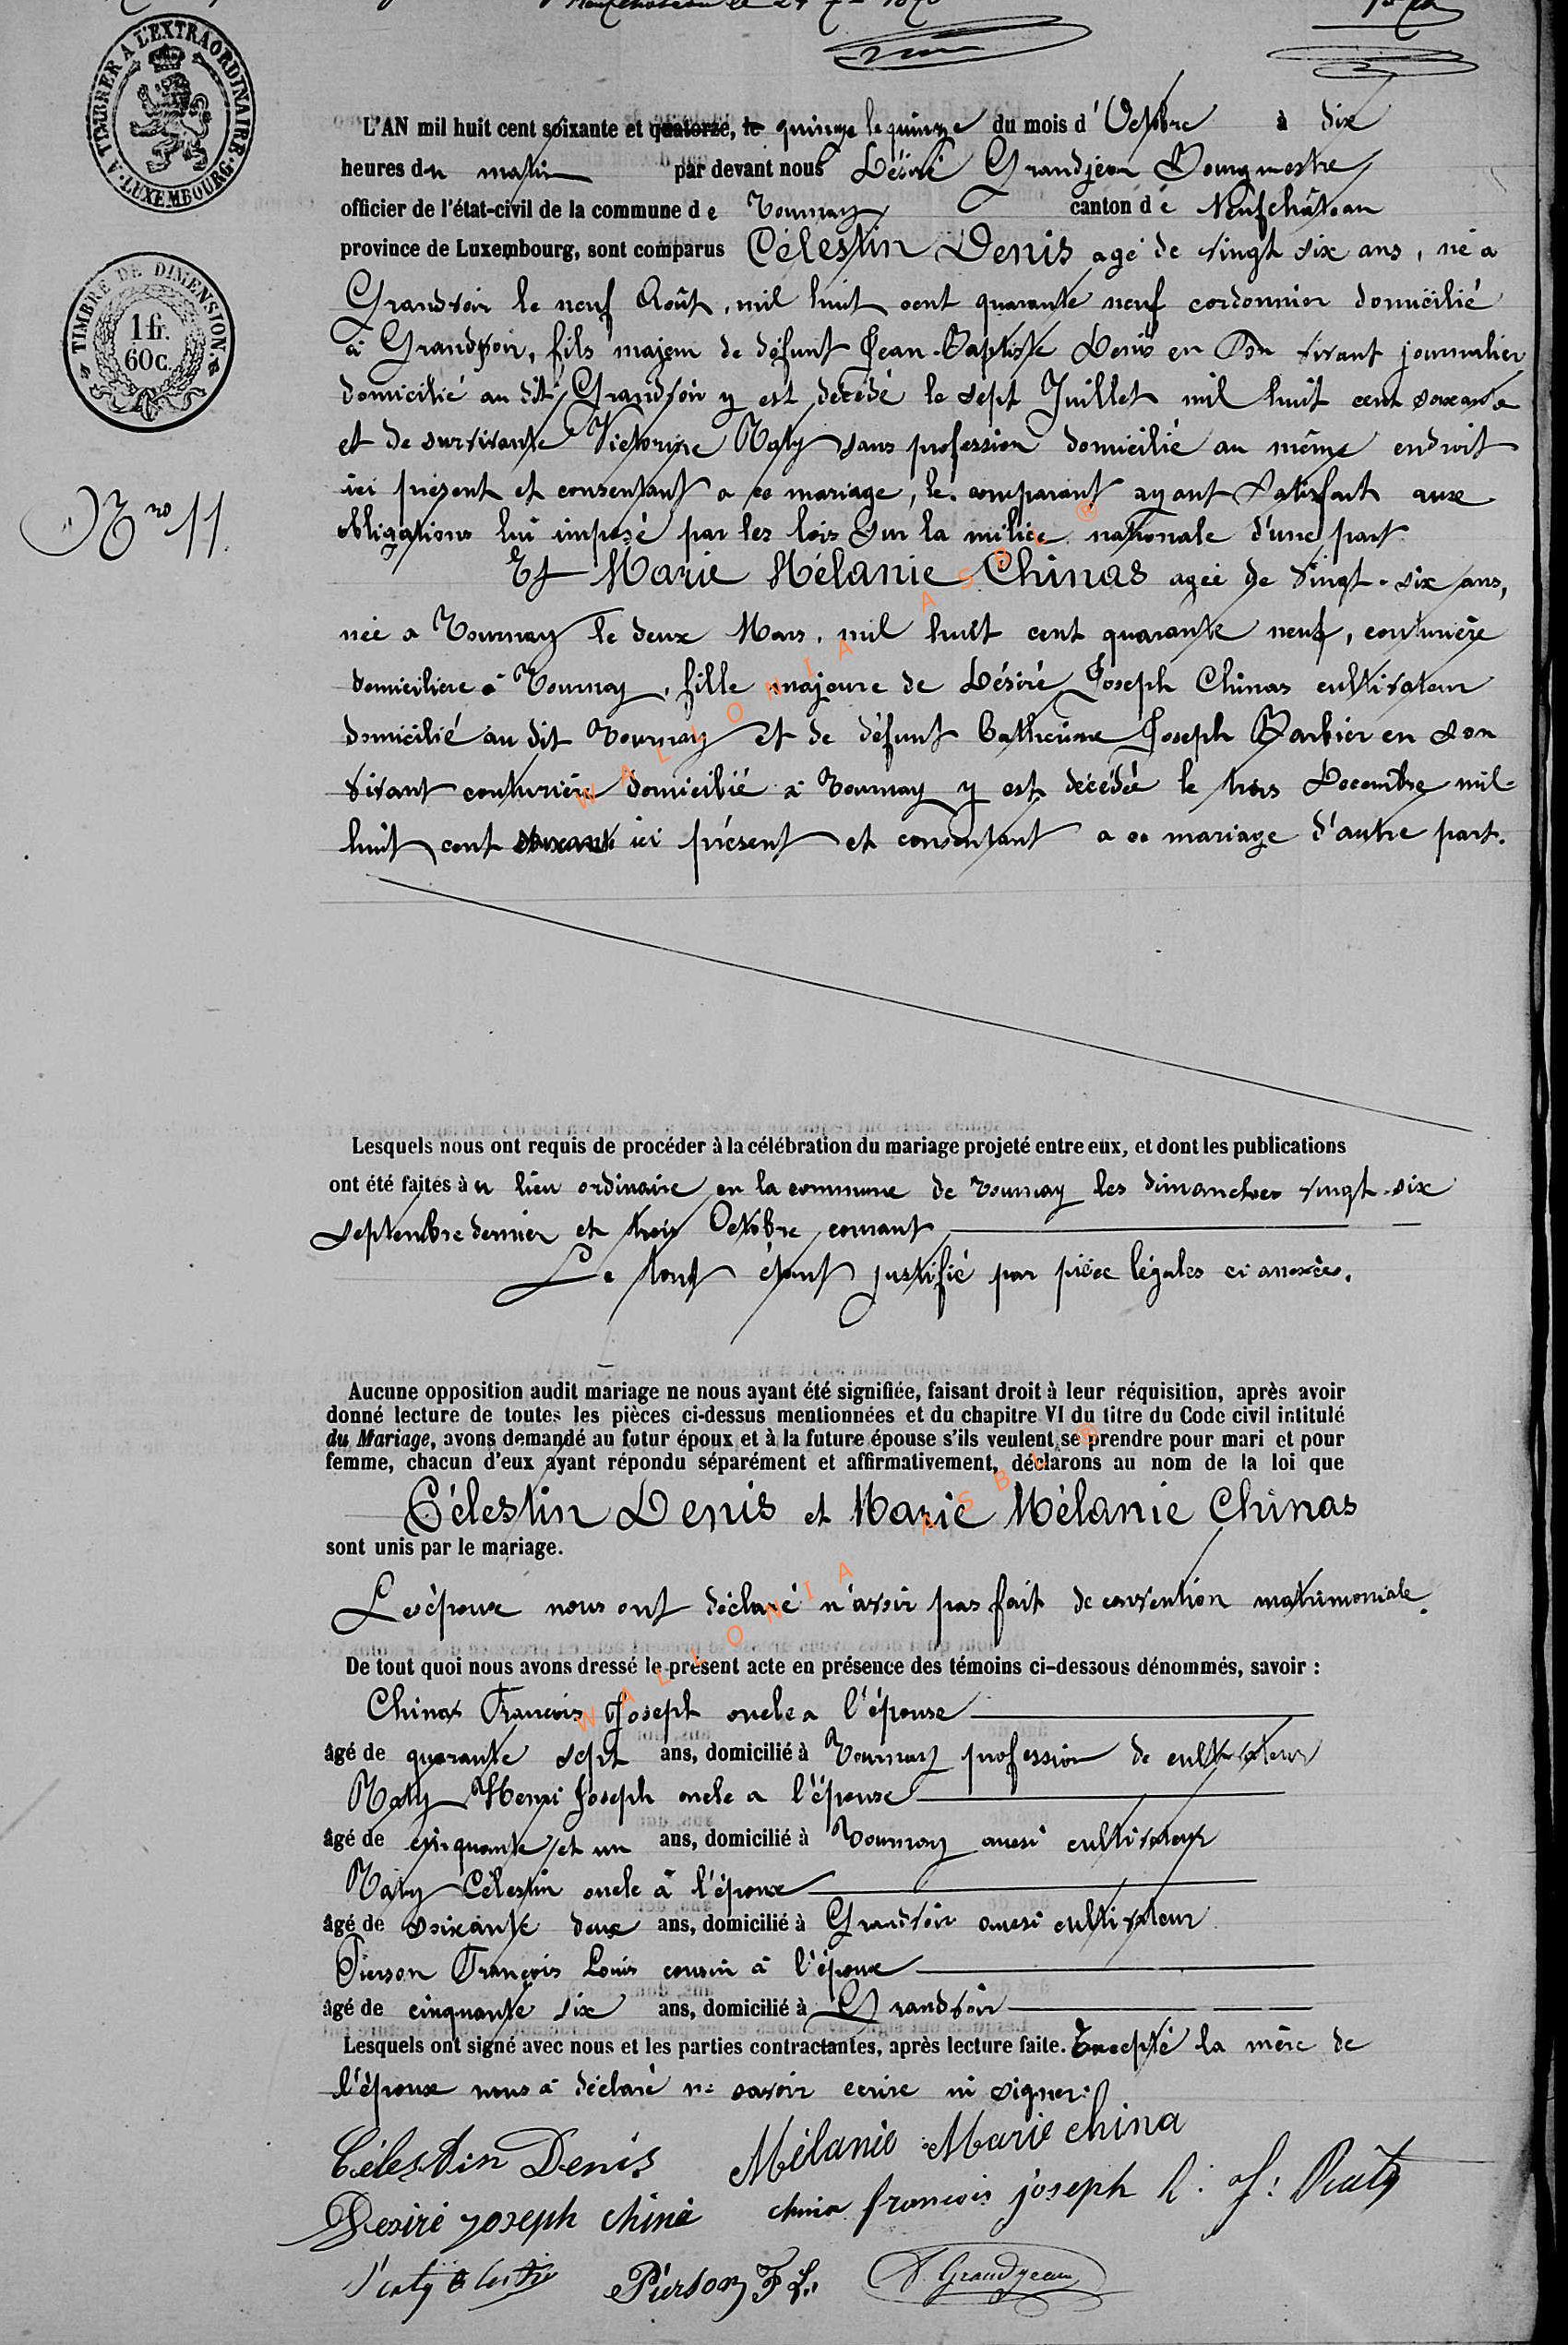 A TIMBRER A L'EXTRAORDINAIRE · LUXEMBOURG ·
TIMBRE DE DIMENSION
1 fr.
60 c.
Nro 11.
L'AN mil huit cent soixante et quatorze, le quinze le quinze du mois d'Octobre à dix
heures du matin par devant nous Désiré Grandjean Bourgmestre
officier de l'état-civil de la commune de Tournay canton de Neufchâteau
province de Luxembourg, sont comparus Célestin Denis agé de vingt six ans, né a
Grandvoir le neuf Août, mil huit cent quarante neuf cordonnier domicilié
à Grandvoir, fils majeur de défunt Jean-Baptiste Denis en son vivant journalier
domicilié au dit Grandvoir y est décédé le sept Juillet mil huit cent soixante
et de survivante Victorine sans profession domicilié au même endroit
ici présent et consentant a ce mariage, le comparant ayant satisfait aux
obligations lui imposé par les lois sur la milice nationale d'une part
Et Marie Mélanie Chinas agée de vingt-six ans,
née a Tournay le deux Mars, mil huit cent quarante neuf, couturière
domiciliere à Tournay, fille majeure de Désiré Joseph Chinas cultivateur
domicilié au dit Tournay et de défunt Catherine Joseph Barbier en son
vivant couturière domicilié à Tournay y est décédée le trois Decembre mil-
huit cent ici présent et consentant a ce mariage d'autre part.
Lesquels nous ont requis de procéder à la célébration du mariage projeté entre eux, et dont les publications
ont été faites au lieu ordinaire en la commune de Tournay les dimanches vingt-six
septembre dernier et trois Octobre courant
Le tout étant justifié par pièce légales ci anexées.
Aucune opposition audit mariage ne nous ayant été signifiée, faisant droit à leur réquisition, après avoir
donné lecture de toutes les pièces ci-dessus mentionnées et du chapitre VI du titre du Code civil intitulé
du Mariage, avons demandé au futur époux et à la future épouse s'ils veulent se prendre pour mari et pour
femme, chacun d'eux ayant répondu séparément et affirmativement, déclarons au nom de la loi que
Célestin Denis et Marie Mélanie Chinas
sont unis par le mariage.
Les époux nous ont déclaré n'avoir pas fait de convention matrimoniale.
De tout quoi nous avons dressé le présent acte en présence des témoins ci-dessous dénommés, savoir :
Chinas François Joseph oncle a l'épouse
âgé de quarante sept ans, domicilié à Tournay profession de cultivateur
Henri Joseph oncle a l'épouse
âgé de cinquante et un ans, domicilié à Tournay aussi cultivateur
Célestin oncle à l'époux
âgé de soixante deux ans, domicilié à Grandvoir aussi cultivateur
Pierson François Louis cousin à l'époux
âgé de cinquante six ans, domicilié à Grandvoir
Lesquels ont signé avec nous et les parties contractantes, après lecture faite. Excepté la mère de
l'époux nous a déclaré ne savoir ecrire ni signer.
Célestin Denis Mélanie Marie china
Desiré joseph chine china francois joseph h. j.
Pierson F L. D. Grandjean
WALLONIA ASBL ®
WALLONIA ASBL ®